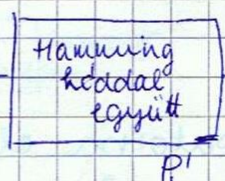 Hamming
kóddal
együtt
P'